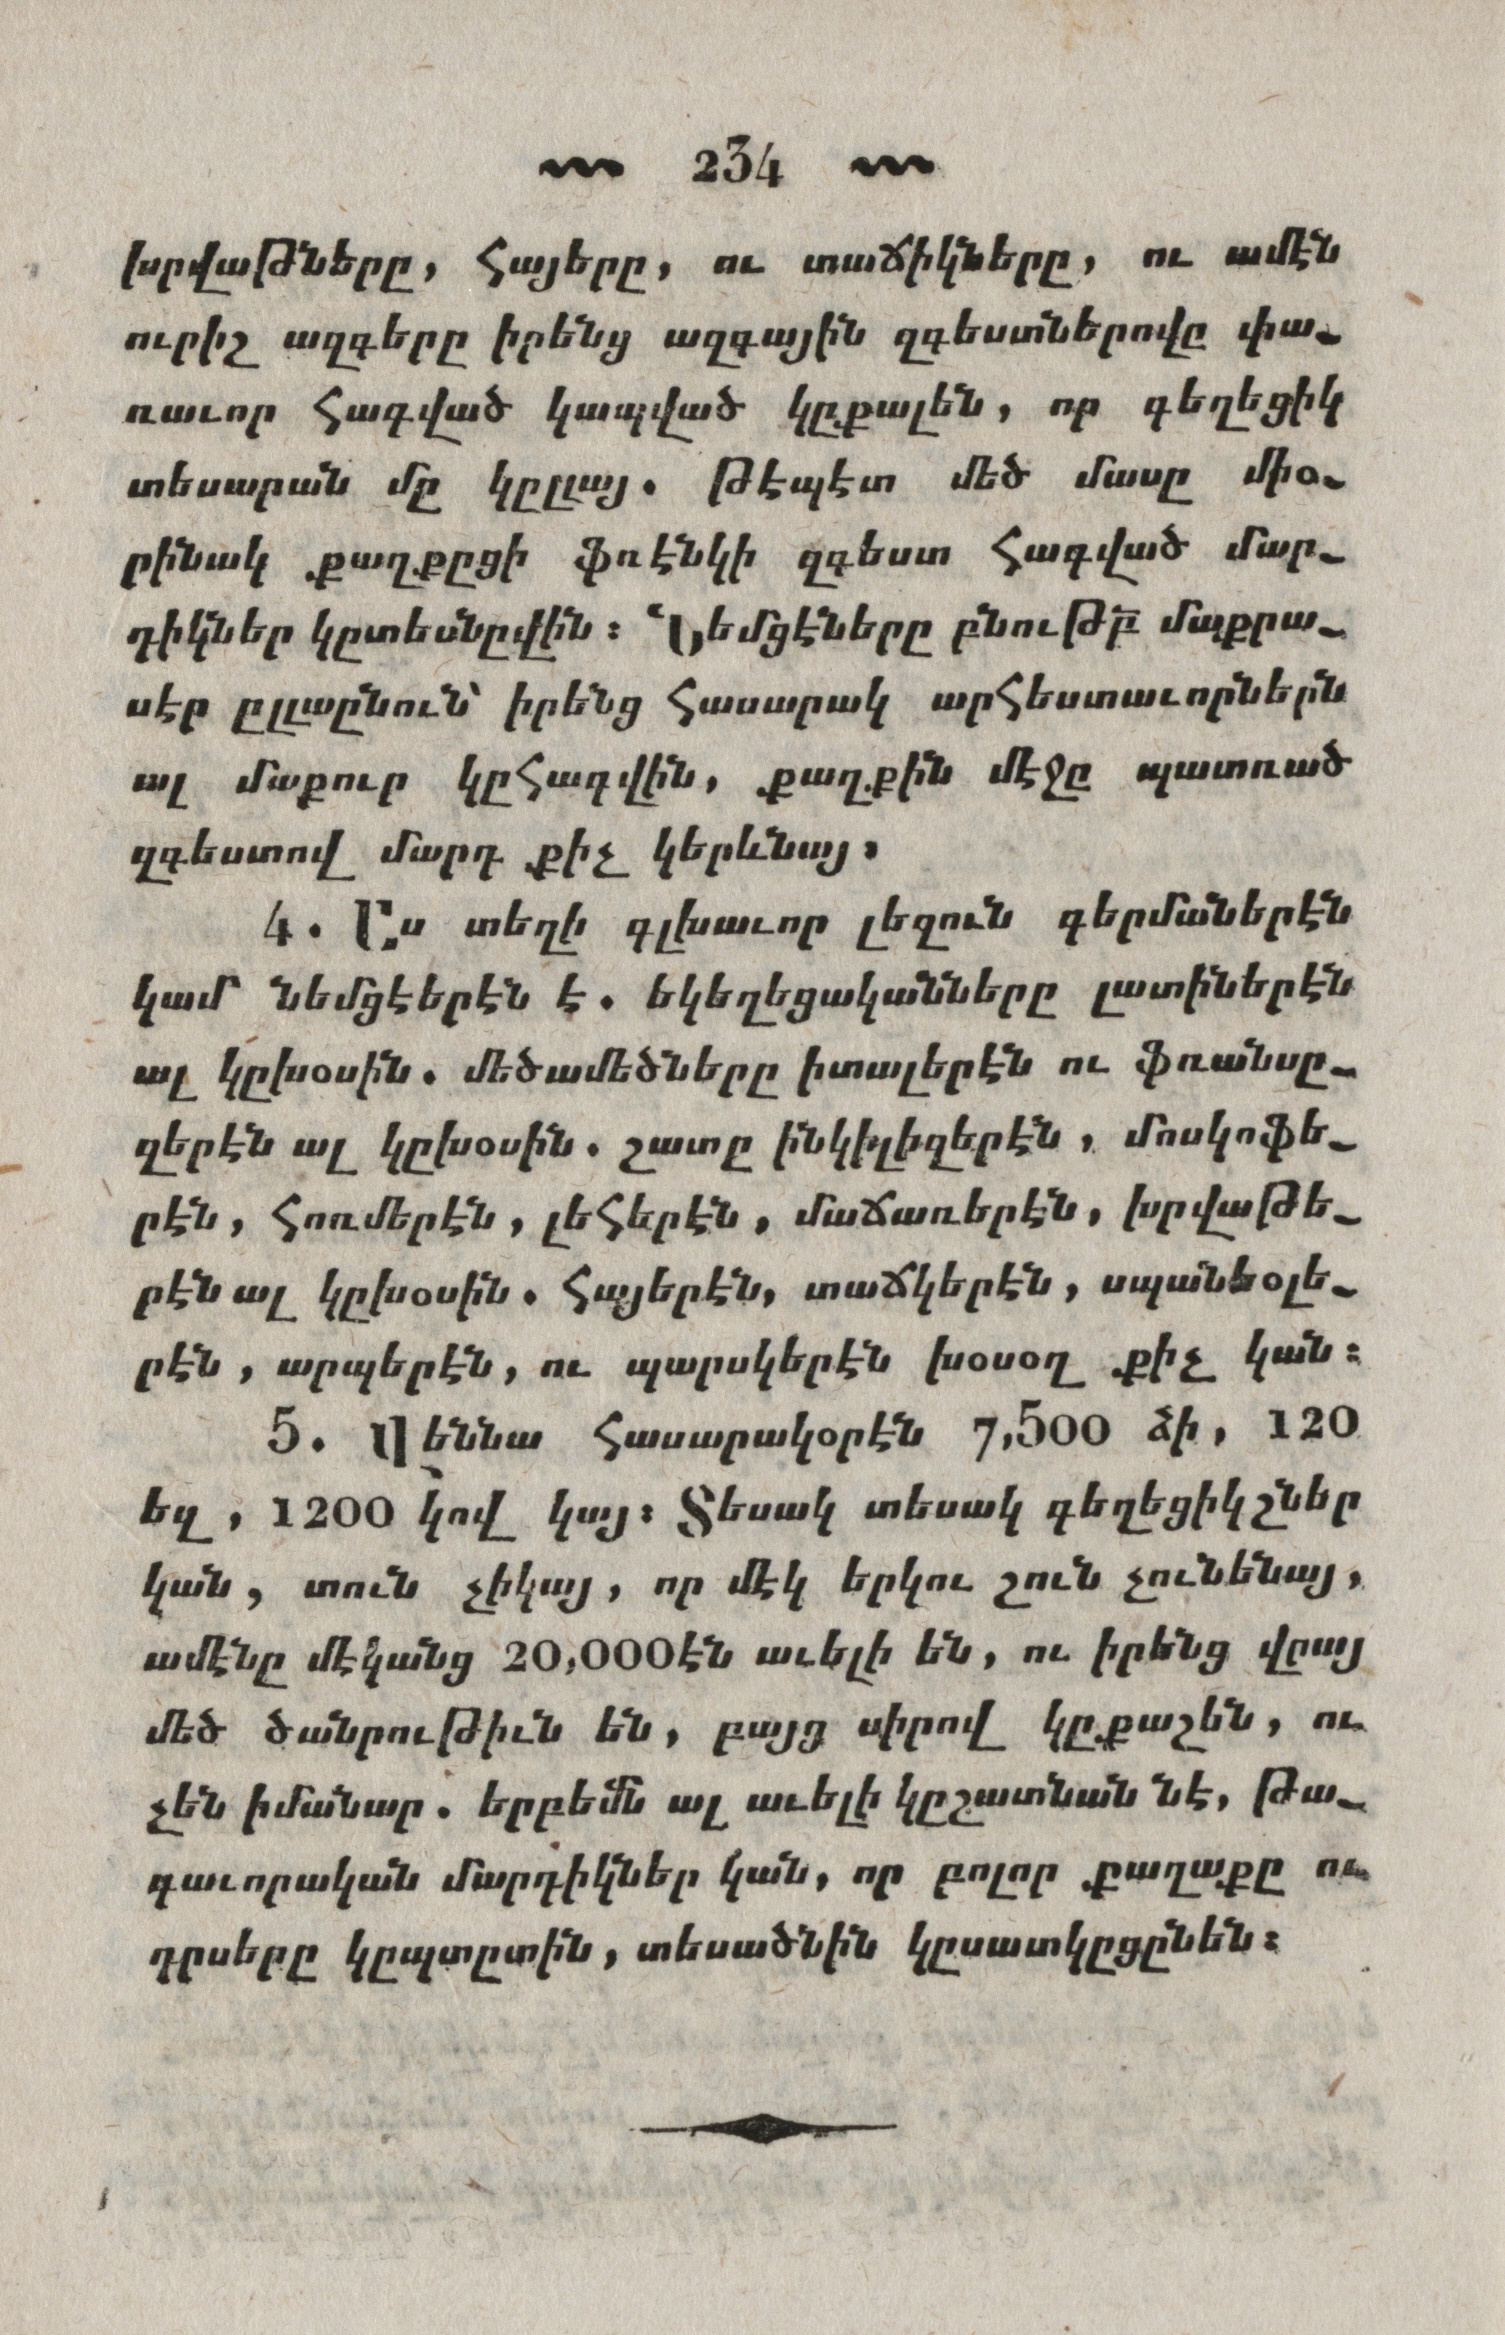 234
խրվաթները, հայերը, ու տաճիկները, ու ամէն
ուրիշ ազգերը իրենց ազգային զգեստներովը փա-
ռաւոր հագված կապված կըքալեն, որ գեղեցիկ
տեսարան մը կըլլայ. թէպէտ մեծ մասը միօ-
րինակ քաղքըցի ֆռէնկի զգեստ հագված մար-
դիկներ կըտեսնըվին: Նեմցէները բնութբ մաքրա-
սէր ըլլարնուն՝ իրենց հասարակ արհեստաւորներն
ալ մաքուր կըհագվին, քաղքին մէջը պատռած
զգեստով մարդ քիչ կերևնայ:
4. Աս տեղի գլխաւոր լեզուն գերմաներէն
կամ նեմցէերէն է. եկեղեցականները լատիներէն
ալ կըխօսին. մեծամեծները իտալերէն ու ֆռանսը-
զերէն ալ կըխօսին. շատը ինկիլիզերէն, մոսկոֆե-
րէն, հոռմերէն, լեհերէն, մաճառերէն, խրվաթե-
րէն ալ կըխօսին. հայերէն, տաճկերէն, սպանեօլե-
րէն, արպերէն, ու պարսկերէն խօսօղ քիչ կան:
5. Վեննա հասարակօրէն 7,500 ձի, 120
եզ, 1200 կով կայ: Տեսակ տեսակ գեղեցիկ շներ
կան, տուն չիկայ, որ մէկ երկու շուն չունենայ,
ամէնը մէկանց 20,000էն աւելի են, ու իրենց վըայ
մեծ ծանրութիւն են, բայց սիրով կըքաշեն, ու
չեն իմանար. երբեմն ալ աւելի կըշատնան նէ, թա-
գաւորական մարդիկներ կան, որ բոլոր քաղաքը ու
դրսերը կըպտըտին, տեսածնին կըսատկըցընեն: